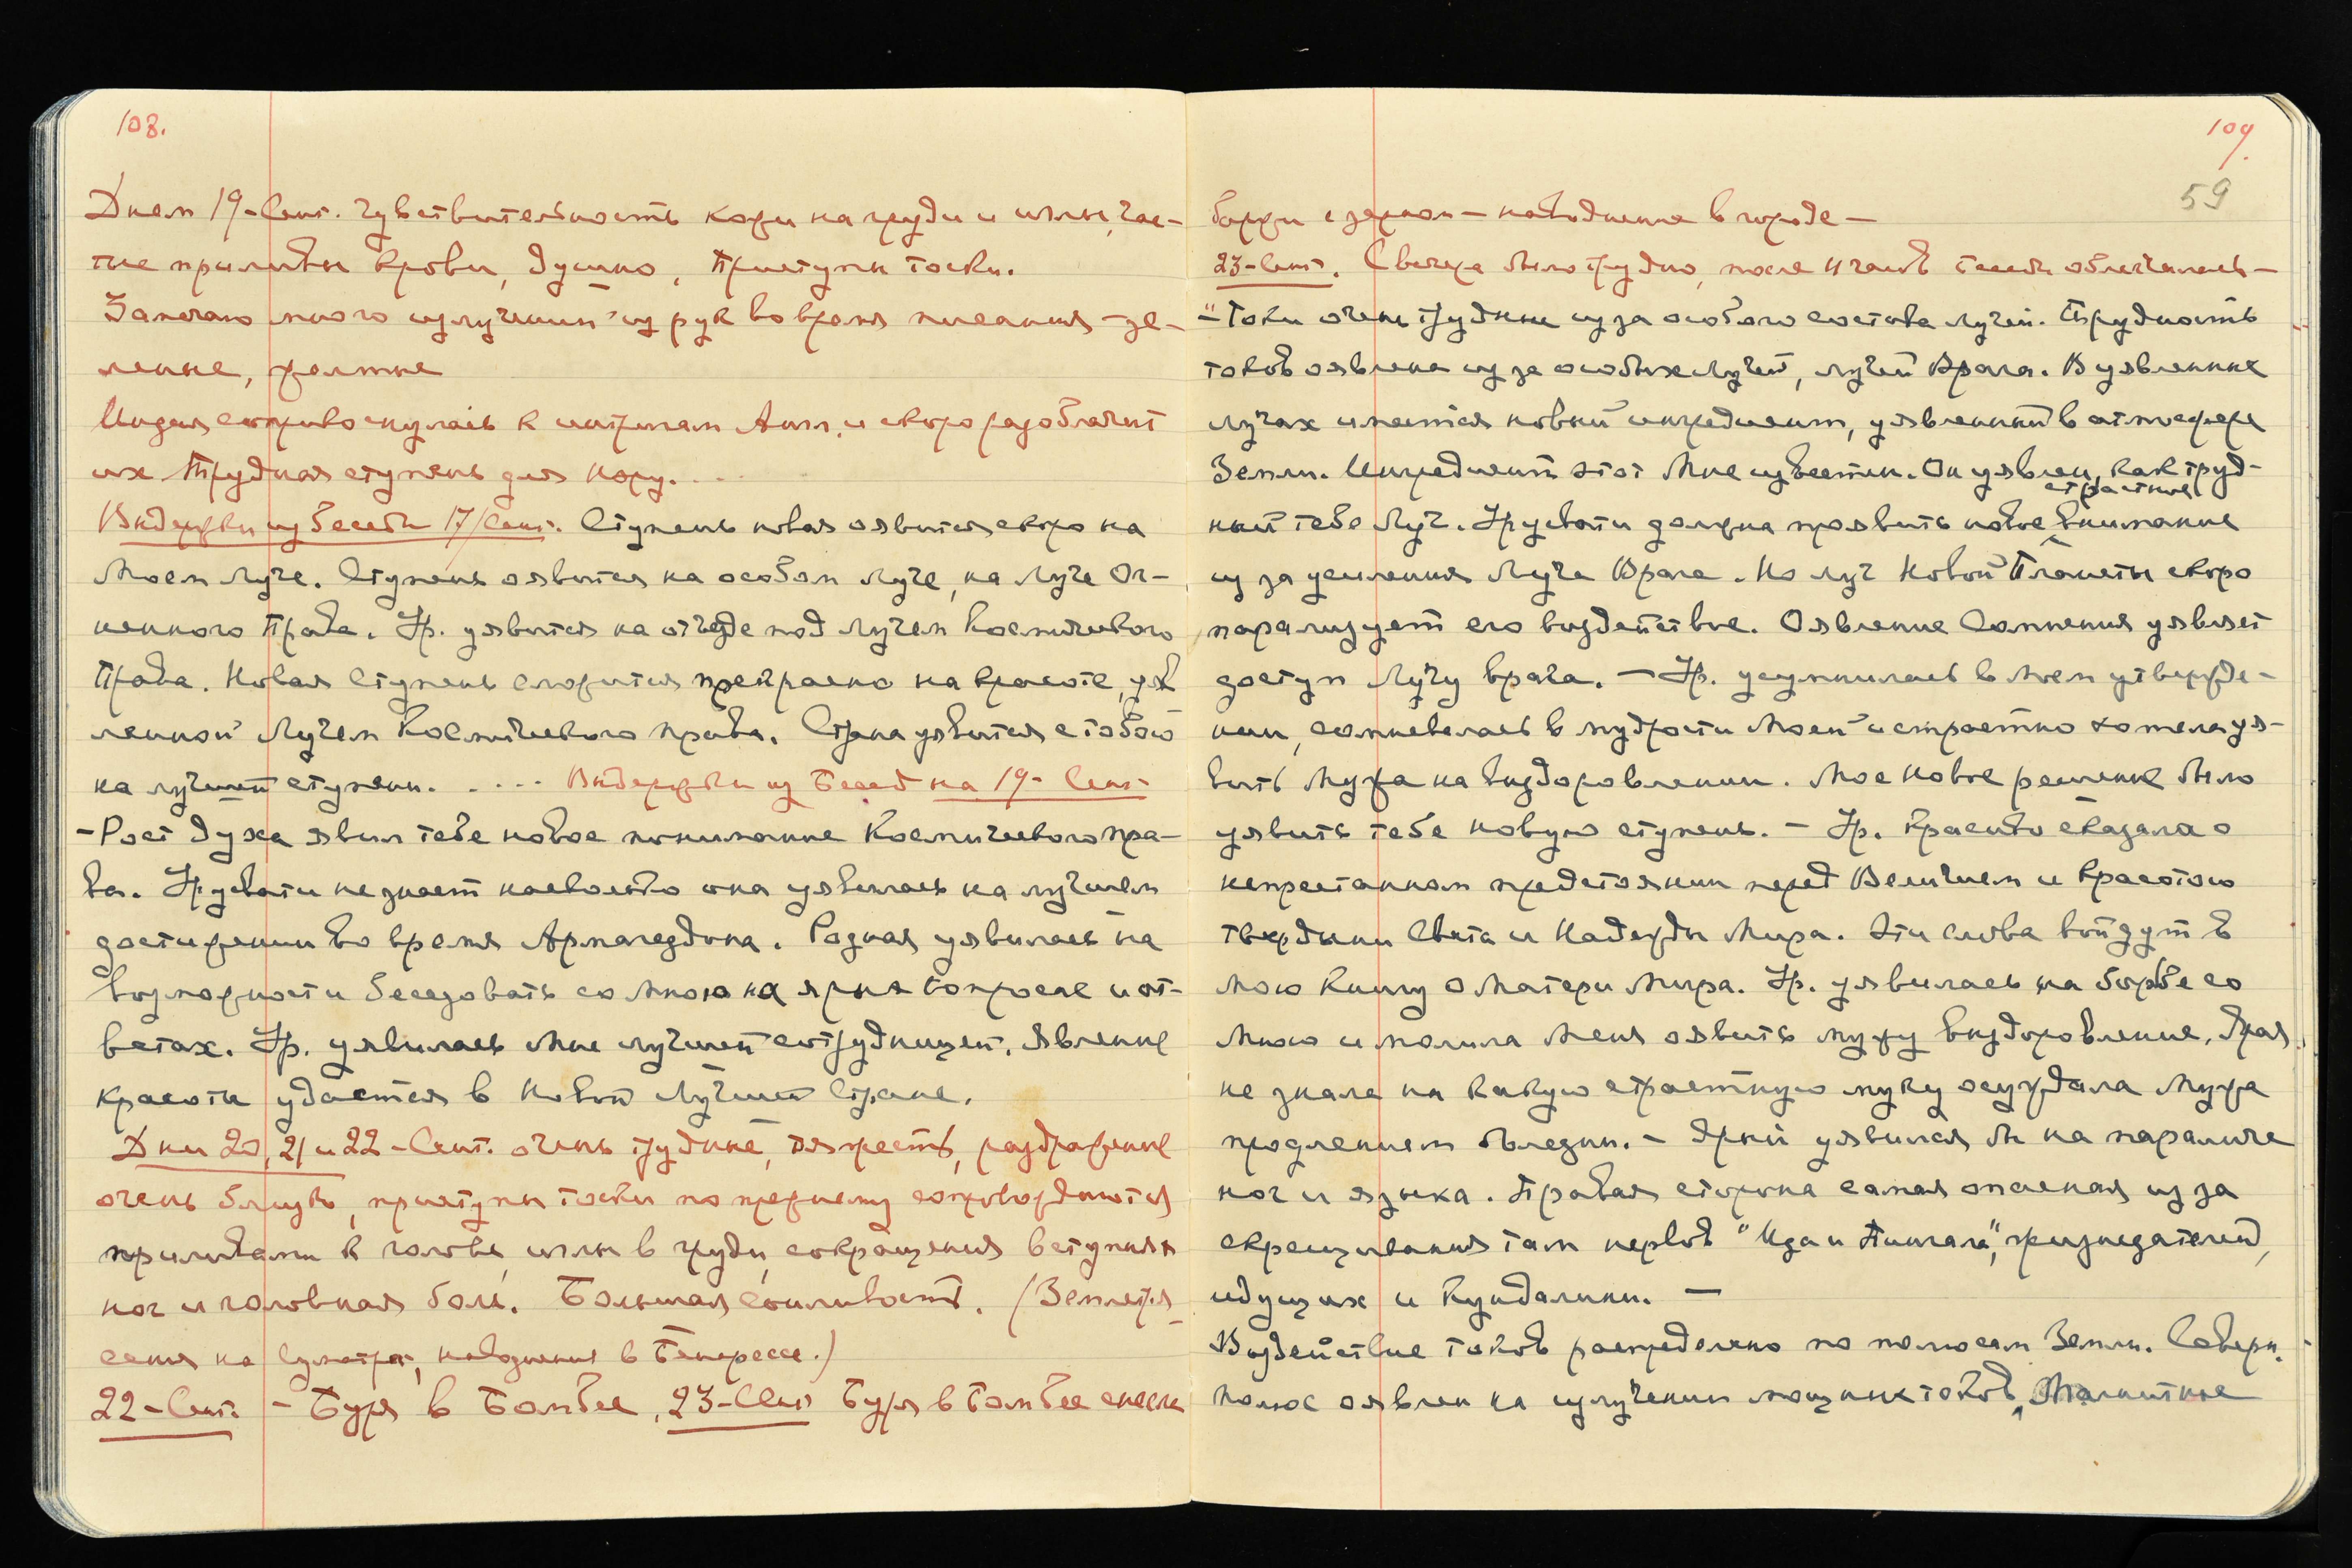 108.
Днем 19-Сент. Чувствительность кожи на груди и иглы, час-
тые приливы крови, душно, приступы тоски.
Замечаю много излучений из рук во время писания - зе-
леные, желтые
Индия соприкоснулась к интригам Англ. и скоро разоблачит
их Трудная ступень для Неру. . . .
Выдержки из беседы 17/Сент. Ступень новая оявится скоро на
Моем Луче. Ступень оявится на особом Луче, на Луче Ог-
ненного Права. Ур. уявится на отъезде под Лучем Космического
Права. Новая Ступень сложится прекрасно на красоте, уяв
ленной Лучем Космического права. Страна уявится с тобою
на лучшей ступени. . . . . Выдержки из Бесед на 19-Сент.
- Рост духа явил тебе новое понимание Космического пра-
ва. Урусвати не знает насколько она уявилась на лучшем
достижении во время Армагеддона. Родная уявилась на
возможности беседовать со Мною на ярых вопросах и от-
ветах. Ур. уявилась Мне лучшей сотрудницей. Явление
красоты удается в Новой Лучшей Стране.
Дни 20, 21 и 22-Сент. очень трудные, тяжесть, раздражение
очень близко, приступы тоски по прежнему сопровождаются
приливами к голове, иглы в груди, сокращения в ступнях
ног и головная боль. Большая сонливость. (Землетря-
сения на Суматре, наводнения в Бенаресе.)
22-Сент. - Буря в Бомбее, 23-Сент Буря в Бомбее снесла
109.
59
баржи с зерном - наводнение в городе -
23-Сент. С вечера было трудно, после и часов беседы облегчилась -
"- Токи очень трудные из за особого состава лучей. Трудность
токов оявлена из за особых Лучей, лучей Врага. В уявленных
лучах имеется новый ингредиент, уявленный в атмосфере
Земли. Ингредиент этот Мне известен. Он уявлен, как труд-
страстное
ный тебе Луч. Урусвати должна проявить новое внимание
из за усиления Луча Врага. Но луч Новой Планеты скоро
парализует его воздействие. Оявление Сомнения уявляет
доступ Лучу врага. - Ур. усумнилась в Моем утвержде-
нии, сомневалась в мудрости Моей и страстно хотела уя-
вить Мужа на выздоровлении. Мое Новое решение было
уявить тебе новую ступень. - Ур. красиво сказала о
непрестанном предстоянии перед Величием и Красотою
твердыни Света и Надежды Мира. Эти слова войдут в
Мою Книгу о Матери Мира. Ур. уявилась на борьбе со
Мною и молила Меня оявить мужу выздоровление. Ярая
не знала на какую страстную муку осуждала Мужа
продлением болезни. - Ярый уявился бы на параличе
ног и языка. Правая сторона самая опасная из за
скрещивания там нервов "Ида и Пингала", жизнедателей,
идущих и Кундалини. -
Воздействие токов распределено по полюсам Земли. Северн.
полюс оявлен на излучении мощных токов, Магнитные